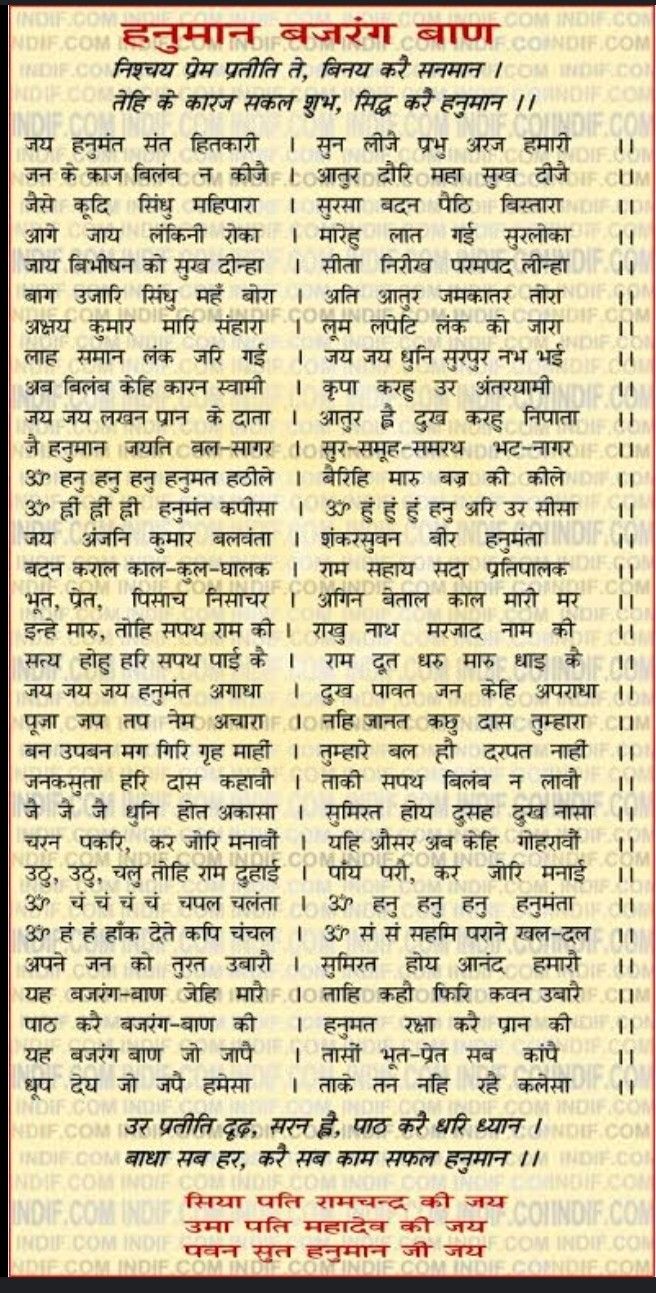 हनुमान बजरंग बाण
निश्चय प्रेम प्रतीति ते, बिनय करै सनमान ।
तेहि के कारज सकल शुभ, सिद्ध करै हनुमान ।।
जय हनुमंत संत हितकारी । सुन लीजै प्रभु अरज हमारी ।।
जन के काज बिलंब न कीजै । आतुर दौरि महा सुख दीजै ।।
जैसे कूदि सिंधु महिपारा । सुरसा बदन पैठि बिस्तारा ।।
आगे जाय लंकिनी रोका । मारेहु लात गई सुरलोका ।।
जाय बिभीषन को सुख दीन्हा । सीता निरखि परमपद लीन्हा ।।
बाग उजारि सिंधु महँ बोरा । अति आतुर जमकातर तोरा ।।
अक्षय कुमार मारि संहारा । लूम लपेटि लंक को जारा ।।
लाह समान लंक जरि गई । जय जय धुनि सुरपुर नभ भई ।।
अब बिलंब केहि कारन स्वामी । कृपा करहु उर अंतरयामी ।।
जय जय लखन प्रान के दाता । आतुर ह्वै दुख करहु निपाता ।।
जै हनुमान जयति बल-सागर । सुर-समूह-समरथ भट-नागर ।।
ॐ हनु हनु हनु हनुमत हठीले । बैरिहि मारु बज्र की कीले ।।
ॐ ह्नीं ह्नीं ह्नीं हनुमंत कपीसा । ॐ हुं हुं हुं हनु अरि उर सीसा ।।
जय अंजनि कुमार बलवंता । शंकरसुवन बीर हनुमंता ।।
बदन कराल काल-कुल-घालक । राम सहाय सदा प्रतिपालक ।।
भूत, प्रेत, पिसाच निसाचर । अगिन बेताल काल मारी मर ।।
इन्हे मारु, तोहि सपथ राम की । राखु नाथ मरजाद नाम की ।।
सत्य होहु हरि सपथ पाई कै । राम दूत धरु मारु धाइ कै ।।
जय जय जय हनुमंत अगाधा । दुख पावत जन केहि अपराधा ।।
पूजा जप तप नेम अचारा । नहि जानत कछु दास तुम्हारा ।।
बन उपबन मग गिरि गृह माहीं । तुम्हारे बल हौं दरपत नाहीं ।।
जनकसुता हरि दास कहावौ । ताकी सपथ बिलंब न लावौ ।।
जै जै जै धुनि होत अकासा । सुमिरत होय दुसह दुख नासा ।।
चरन पकरि, कर जोरि मनावौं । यहि औसर अब केहि गोहरावौं ।।
उठु, उठु, चलु तोहि राम दुहाई । पाँय परौ, कर जोरि मनाई ।।
ॐ चं चं चं चं चपल चलंता । ॐ हनु हनु हनु हनुमंता ।।
ॐ हं हं हाँक देते कपि चंचल । ॐ सं सं सहमि पराने खल-दल ।।
अपने जन को तुरत उबारौ । सुमिरत होय आनंद हमारौ ।।
यह बजरंग-बाण जेहि मारै । ताहि कहौ फिरि कवन उबारै ।।
पाठ करै बजरंग-बाण की । हनुमत रक्षा करै प्रान की ।।
यह बजरंग बाण जो जापै । तासों भूत-प्रेत सब कांपै ।।
धूप देय जो जपै हमेसा । ताके तन नहि रहै कलेसा ।।
उर प्रतीति दृढ़, सरन ह्वै, पाठ करै धरि ध्यान ।
बाधा सब हर, करै सब काम सफल हनुमान ।।
सिया पति रामचन्द्र की जय
उमा पति महादेव की जय
पवन सुत हनुमान जी जय